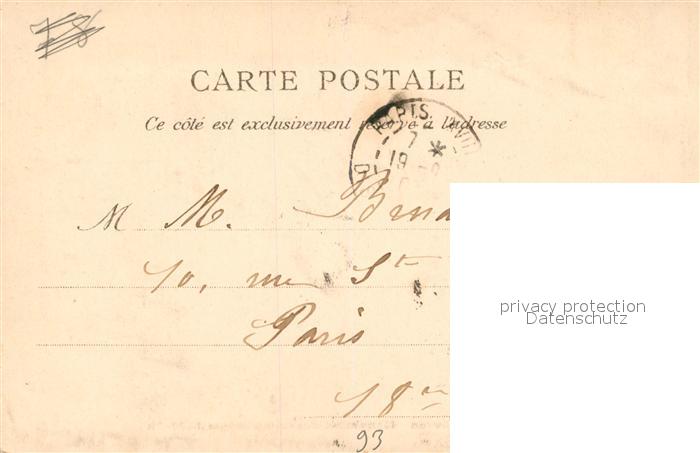 CARTE POSTALE
Ce côté est exclusivement réservé à l'adresse
PARIS
7
19
M M.
10, rue St
Paris
18e
93
privacy protection
Datenschutz